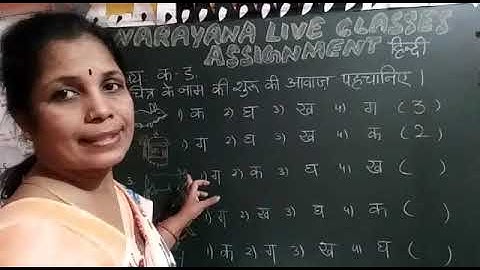 NARAYANA LIVE CLASSES
ASSIGNMENT हिन्दी
क - ङ.
चित्र के नाम की शुरू की आवाज़ पहचानिए ।
1) क 2) घ 3) ख 4) ग ( 3 )
1) ग 2) घ 3) ख 4) क ( 2 )
3. 1) ग 2) क 3) घ 4) ख ( )
1) ग 2) ख 3) घ 4) क ( )
1) क 2) ग 3) ख 4) घ ( )